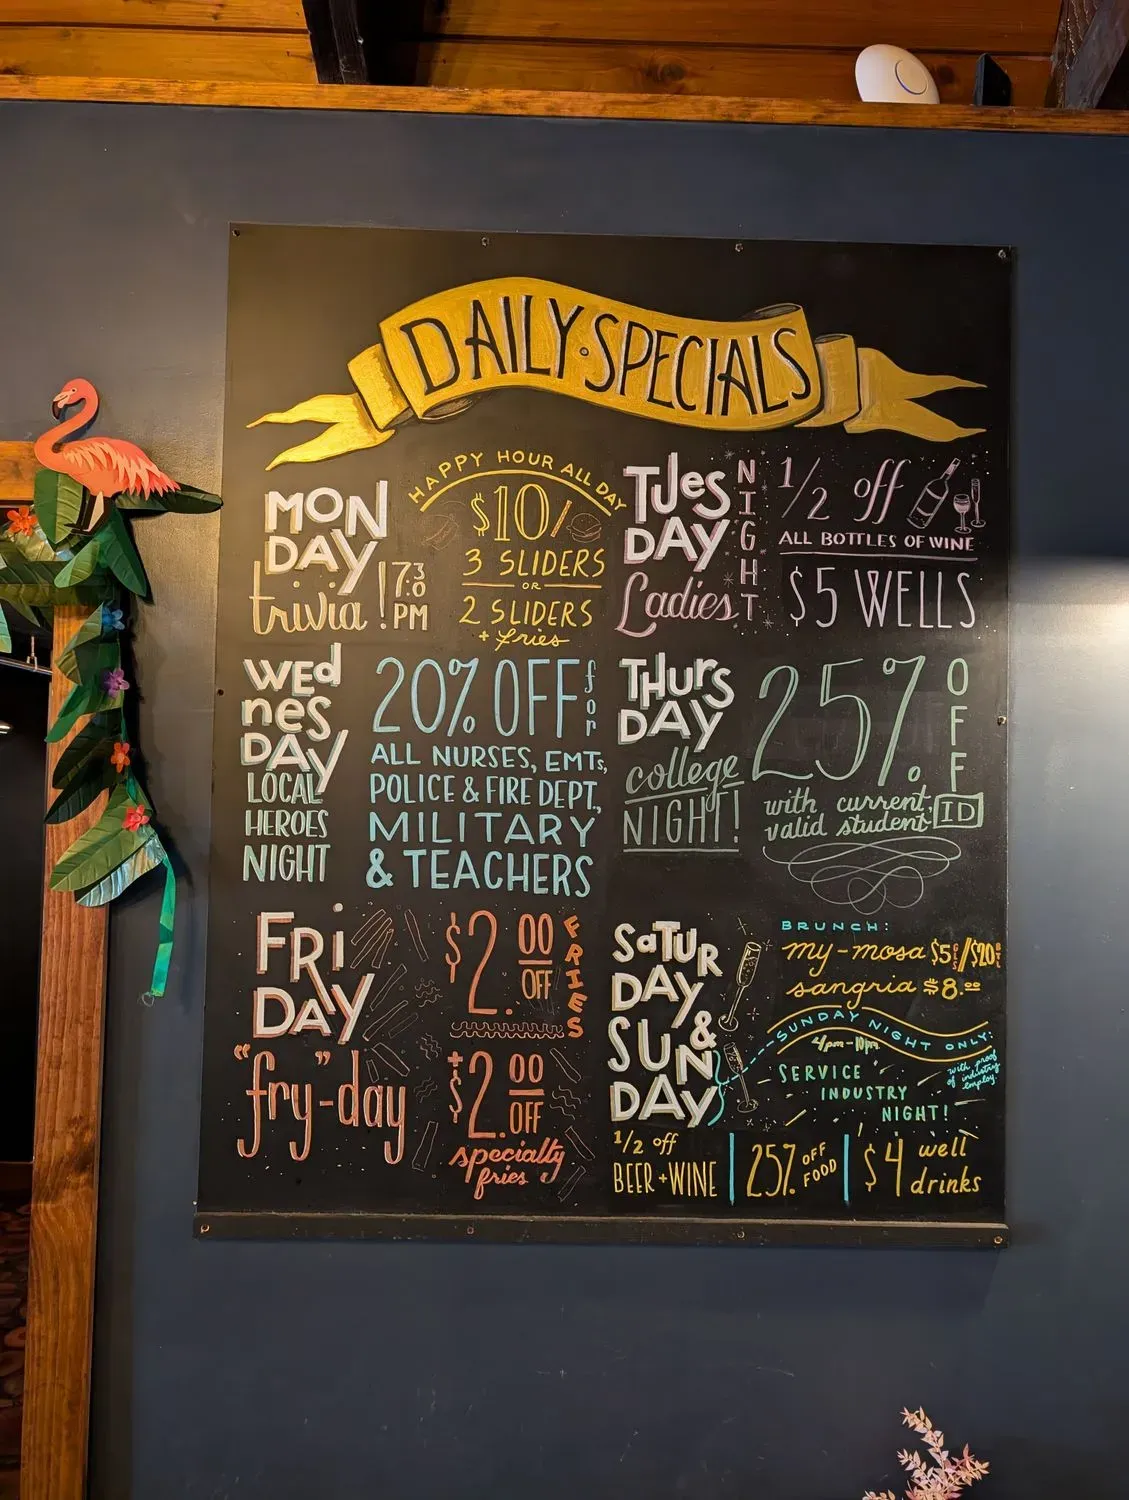 DAILY·SPECIALS
MON
DAY
trivia! 7:30 PM
HAPPY HOUR ALL DAY
$10/
3 SLIDERS
OR
2 SLIDERS
+ fries
TUES
DAY
Ladies
NIGHT
1/2 off
ALL BOTTLES OF WINE
$5 WELLS
WED
NES
DAY
LOCAL
HEROES
NIGHT
20% OFF for
ALL NURSES, EMTs,
POLICE & FIRE DEPT.,
MILITARY
& TEACHERS
THURS
DAY
college
NIGHT!
25% OFF
with current,
valid student ID
FRI
DAY
"fry"-day
$2.00
OFF
FRIES
+
$2.00
OFF
specialty
fries
SATUR
DAY &
SUN
DAY
BRUNCH:
my-mosa $5 GLS//$20 BTL
sangria $8.00
SUNDAY NIGHT ONLY:
4pm-10pm
with proof
of industry
employ.
SERVICE
INDUSTRY
NIGHT!
1/2 off
BEER + WINE
25% OFF
FOOD
$4 well
drinks